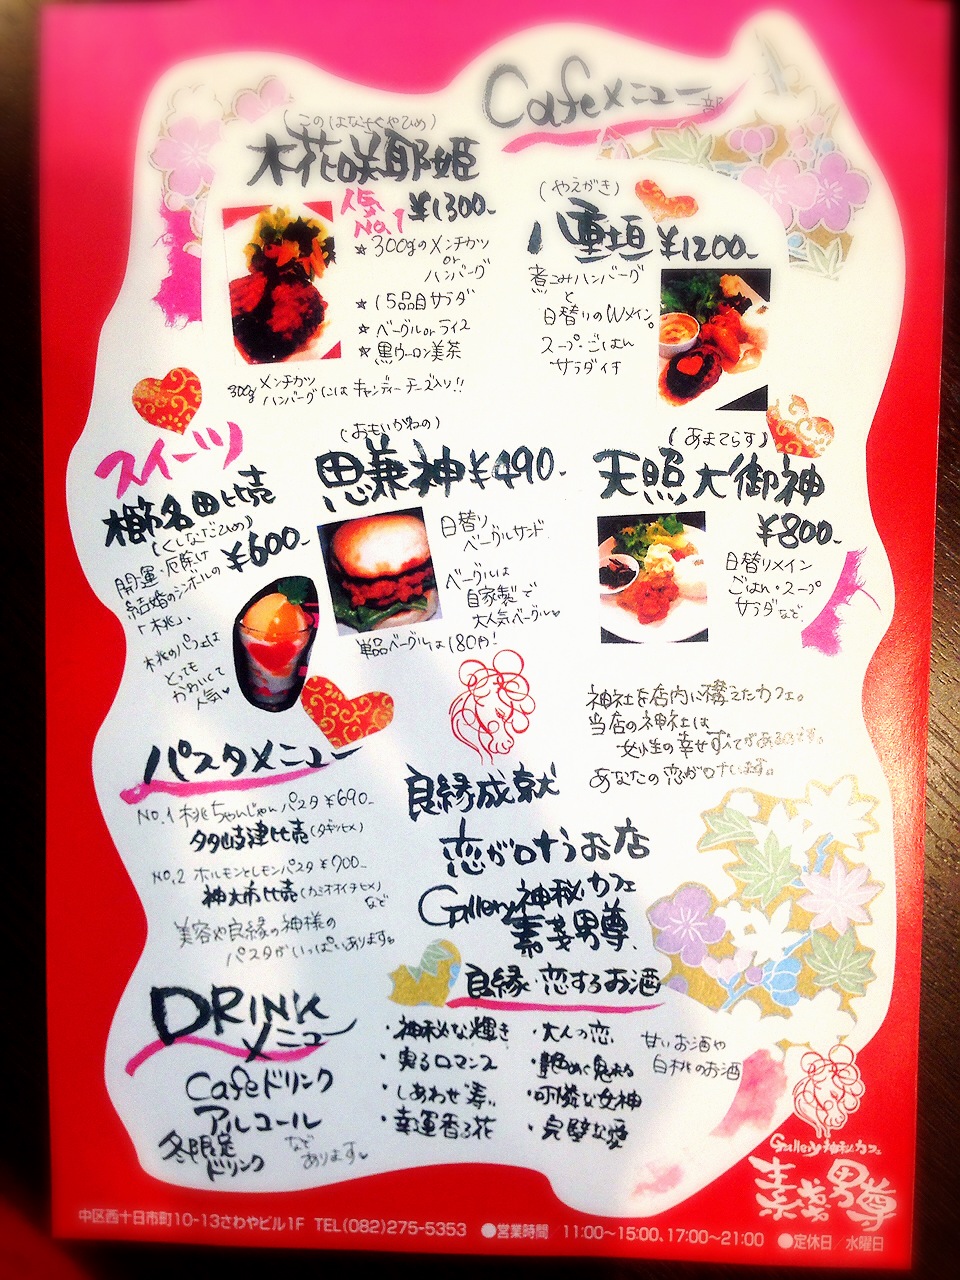 Cafeメニュー 一部
(このはなさくやひめ)
木花咲耶姫
人気No.1 ¥1300-
☆300gのメンチカツ
or
ハンバーグ
☆15品目サラダ
☆ベーグルorライス
☆黒ウーロン美茶
300gメンチカツ
ハンバーグにはキャンディーチーズ入り!!
(やえがき)
八重垣 ¥1200-
煮こみハンバーグ
と
日替りのWメイン。
スープ・ごはん
サラダ付
スイーツ
櫛名田比売
(くしなだひめ)
¥600-
開運・厄除け
結婚のシンボルの
「桃」、
桃のパフェは
とっても
かわいくて
人気♥
(おもいかねの)
思兼神 ¥490-
日替り
ベーグルサンド
ベーグルは
自家製で
大人気ベーグル♥
単品ベーグルは180円!
(あまてらす)
天照大御神
¥800-
日替りメイン
ごはん・スープ
サラダなど
神社を店内に構えたカフェ。
当店の神社は
女性の幸せすべてがあるのです。
あなたの恋が叶います。
パスタメニュー
No.1 桃ちゃんじゃんパスタ ¥690-
多岐津比売(タギツヒメ)
No.2 ホルモンとレモンパスタ ¥700-
神大市比売(カミオオイチヒメ)
など
美容や良縁の神様の
パスタがいっぱいあります。
良縁成就
恋が叶うお店
Gallery神秘カフェ
素戔男尊
DRINK
メニュー
Cafeドリンク
アルコール
冬限定
ドリンク
など
あります♥
良縁・恋するお酒
・神秘な輝き
・実るロマンス
・しあわせ・寿。
・幸運香る花
・大人の恋
・艶めく魅力
・可憐な女神
・完璧な愛
甘いお酒や
白桃のお酒
Gallery神秘カフェ
素戔男尊
中区西十日市町10-13さわやビル1F TEL(082)275-5353 ●営業時間 11:00〜15:00、17:00〜21:00 ●定休日/水曜日